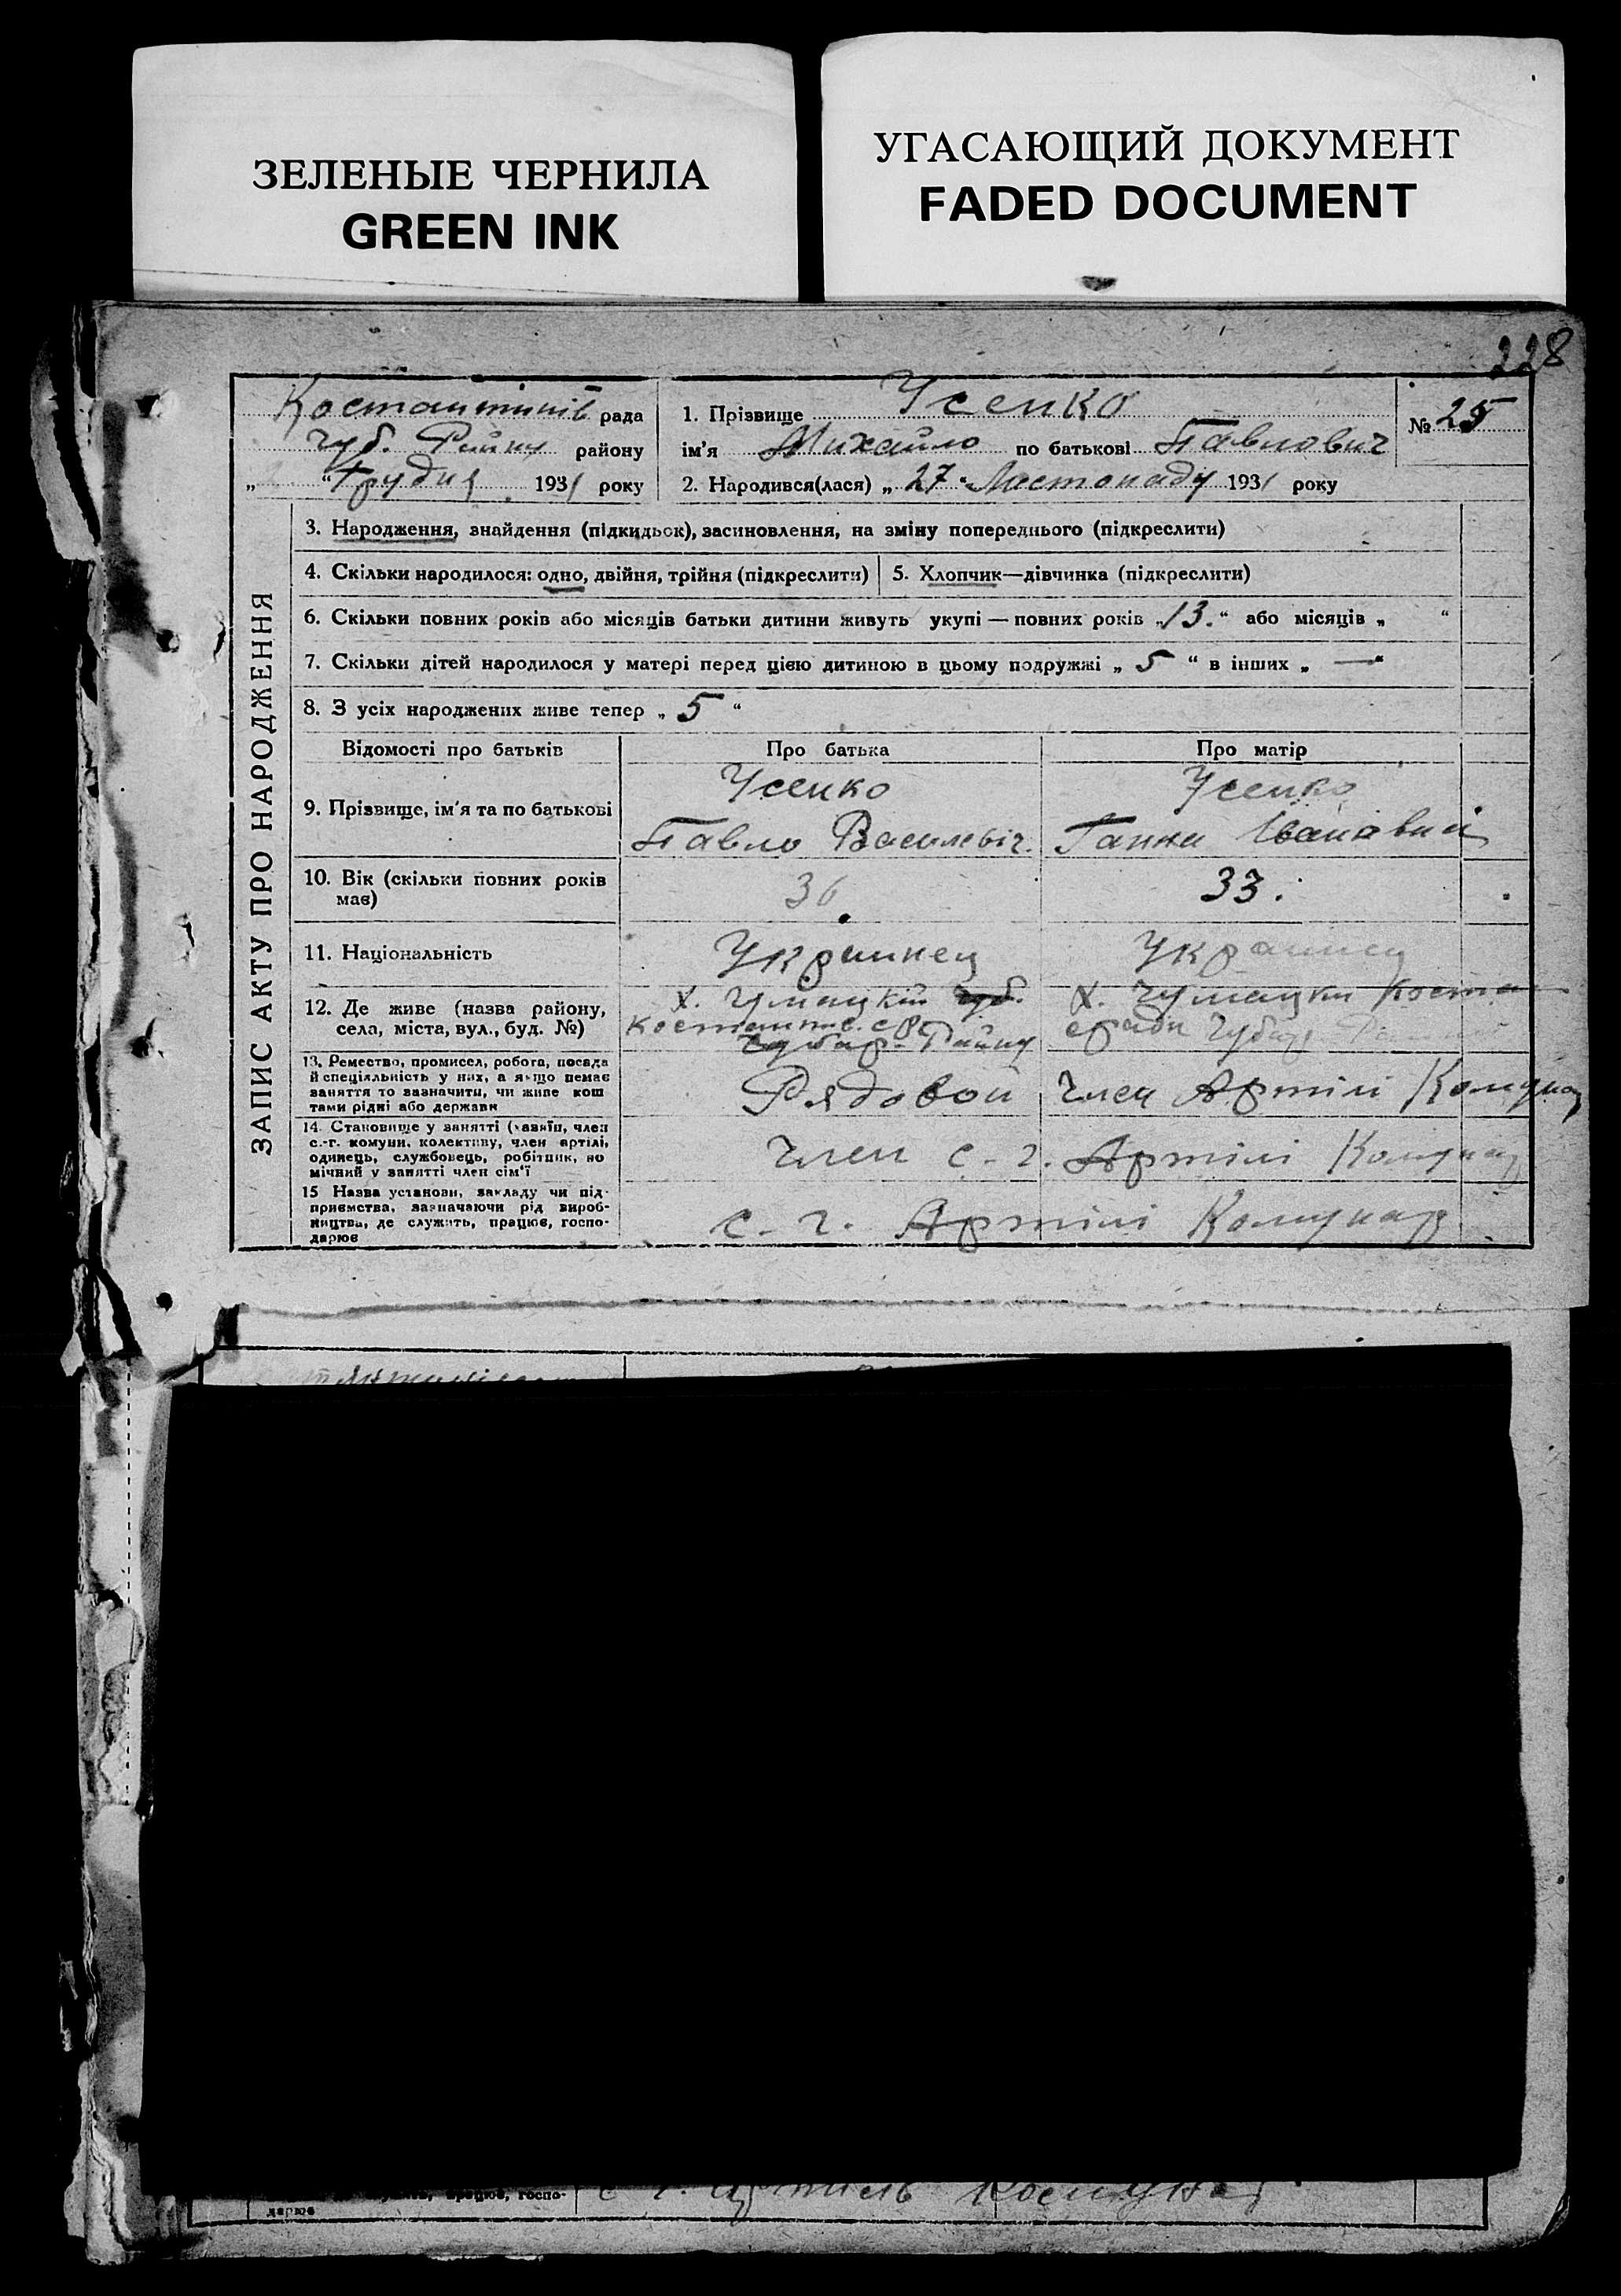 ЗЕЛЕНЫЕ ЧЕРНИЛА
GREEN INK
УГАСАЮЩИЙ ДОКУМЕНТ
FADED DOCUMENT
228
ЗАПИС АКТУ ПРО НАРОДЖЕННЯ
Костантинів рада
Чуб. Району району
„ “ Грудня 1931 року
1. Прізвище Усенко
ім'я Михайло по батькові Павлович
№ 25
2. Народився(лася) „ 27 “ Листопаду 1931 року
3. Народження, знайдення (підкидьок), засиновлення, на зміну попереднього (підкреслити)
4. Скільки народилося: одно, двійня, трійня (підкреслити)
5. Хлопчик—дівчинка (підкреслити)
6. Скільки повних років або місяців батьки дитини живуть укупі — повних років „13.“ або місяців „ “
7. Скільки дітей народилося у матері перед цією дитиною в цьому подружжі „ 5 “ в інших „ — “
8. З усіх народжених живе тепер „ 5 “
Відомості про батьків Про батька Про матір
9. Прізвище, ім'я та по батькові
Усенко
Павло Василевіч.
Усенко
Ганна Івановна
10. Вік (скільки повних років має)
36
33.
11. Національність
Украинец
Украинец
12. Де живе (назва району,
села, міста, вул., буд. №)
х. Чумацкий Чуб.
Костантин. с/р
Чубар. Району
х. Чумацки Коста
сради Чубар
13. Ремество, промисел, робота, посада
й спеціяльність у них, а якщо немає
заняття то зазначити, чи живе кош
тами рідні або держави
Рядовой Член Артілі Комунар
14. Становище у занятті (хазяїн, член
с.-г. комуни, колективу, член артілі,
одинець, службовець, робітник, по
мічний у занятті член сім'ї
Член с-г. Артілі Комунар
15 Назва установи, закладу чи під-
приємства, зазначаючи рід вироб-
ництва, де служить, працює, госпо-
дарює
с-г. Артілі Комунар
працює, госпо-
дарює
с г. Артиль